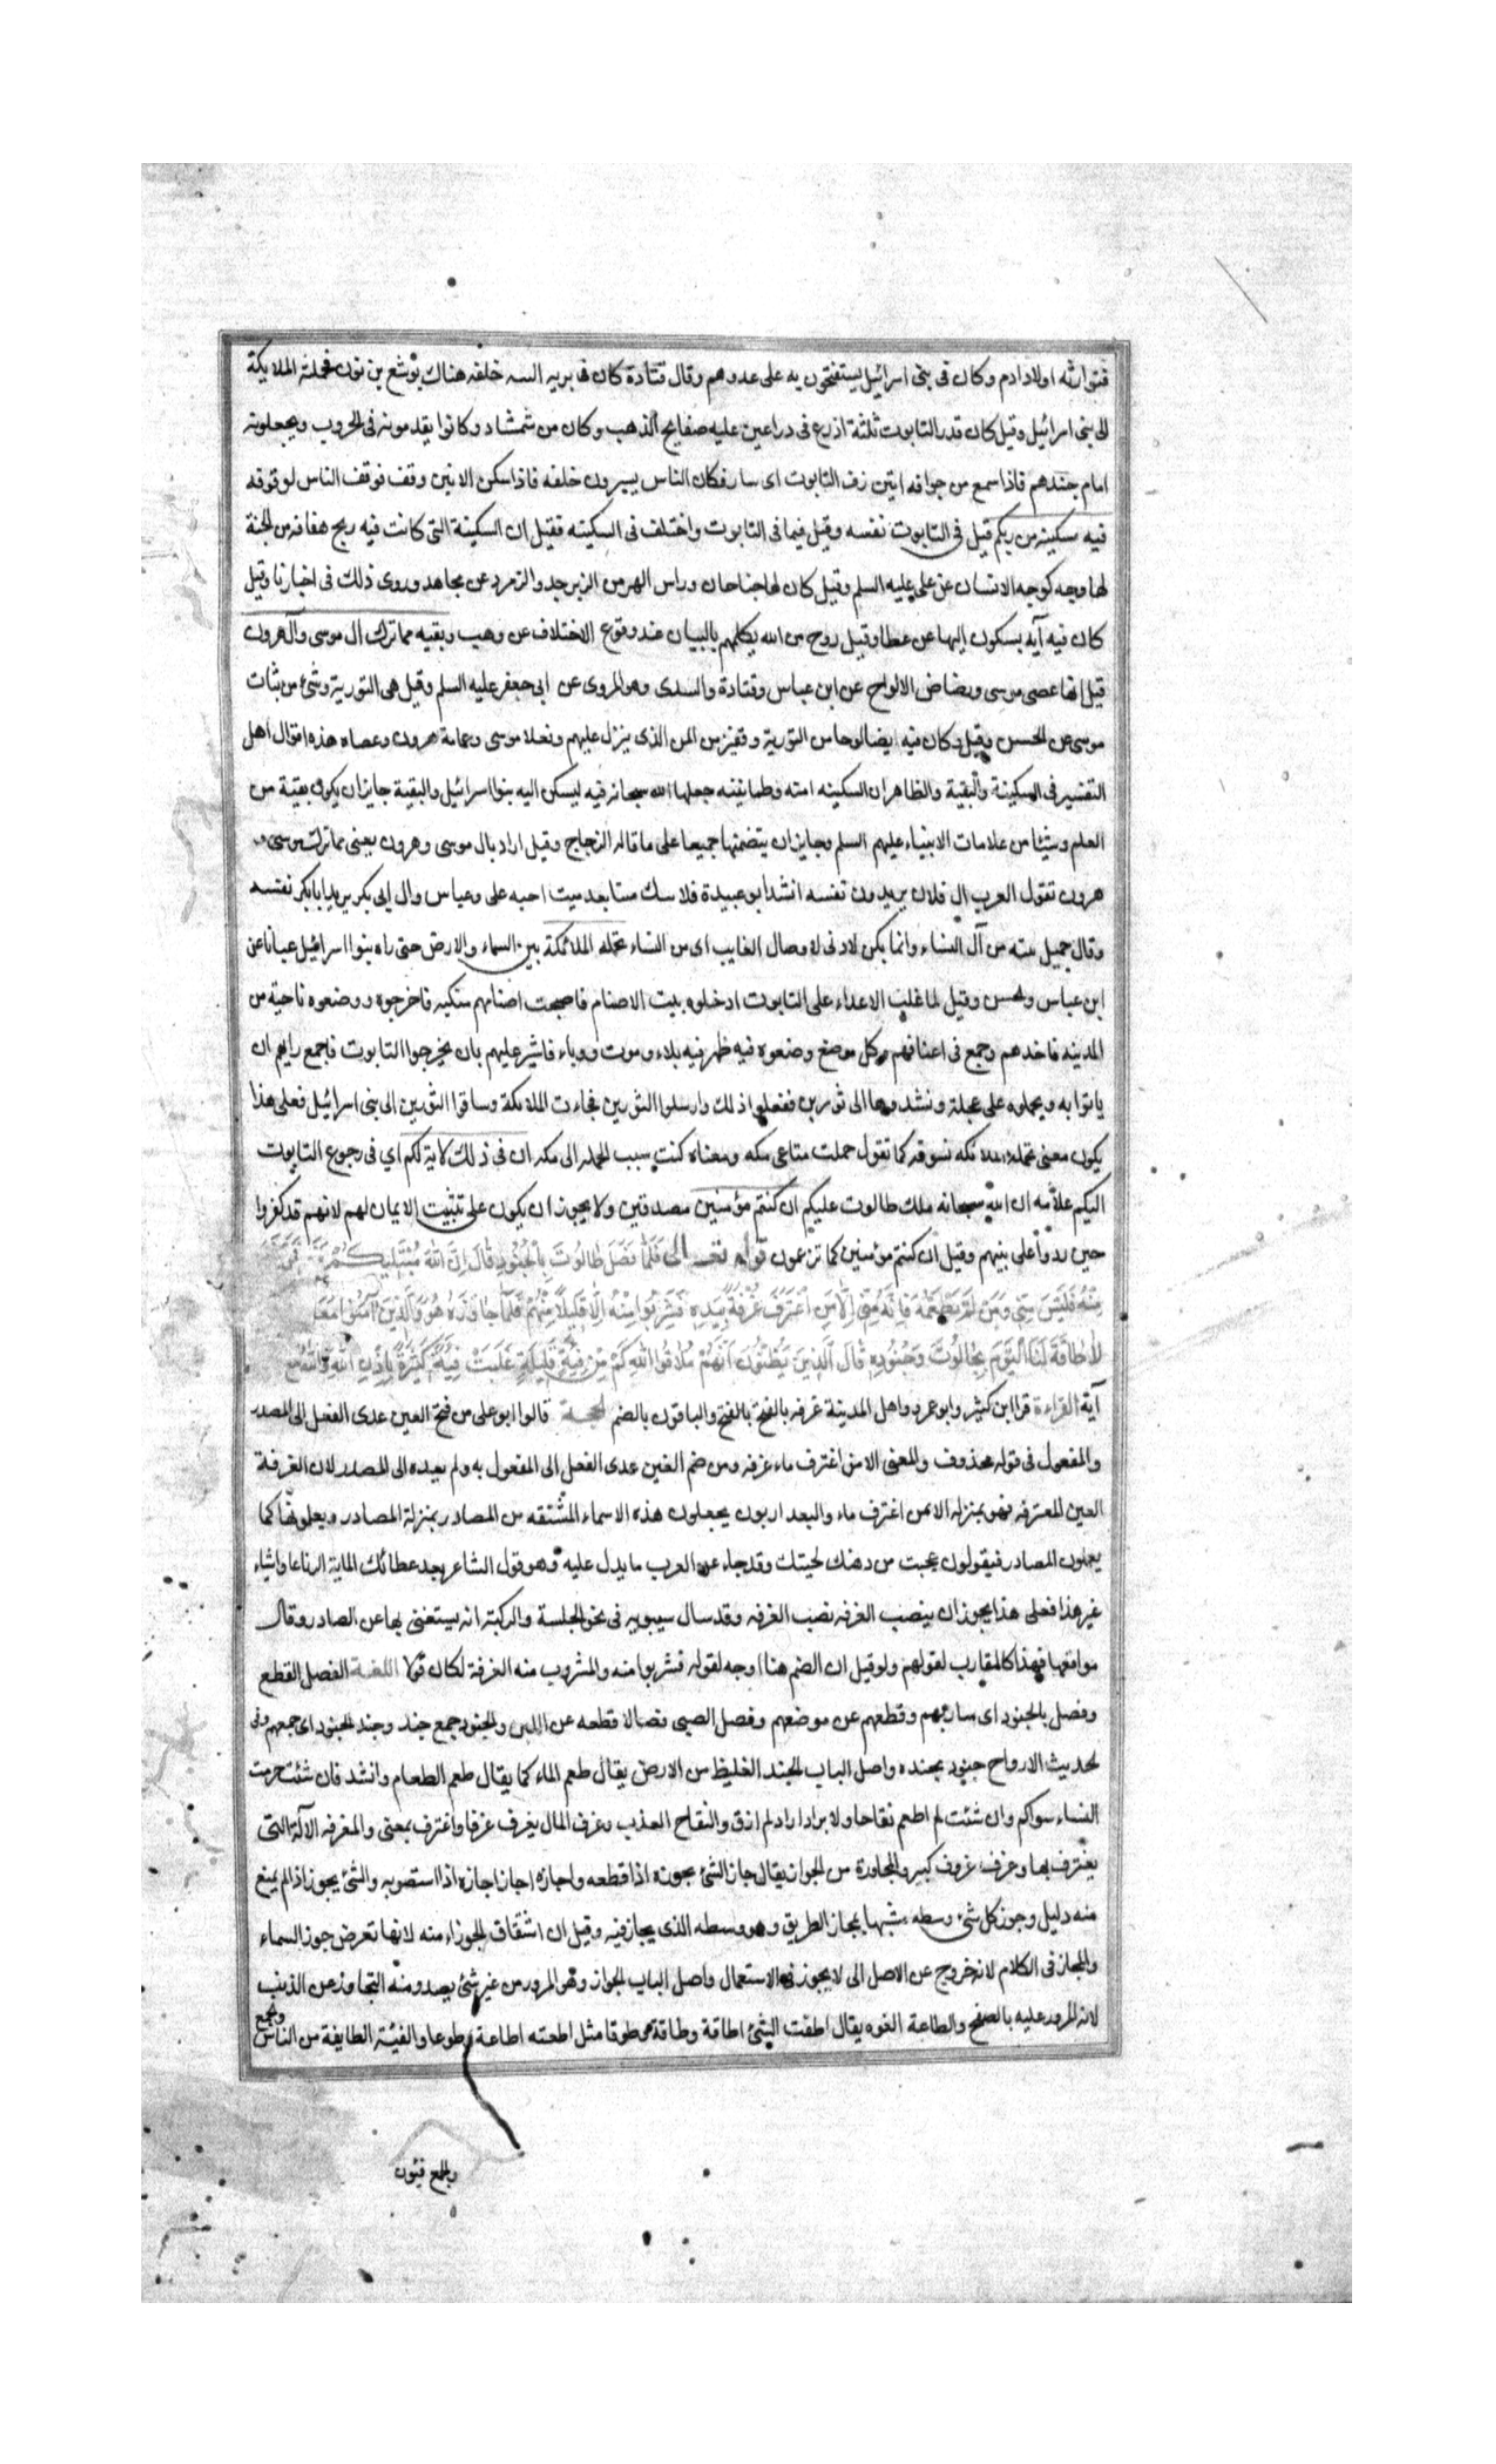 فتوارثه اولاد ادم وكان في بني اسرائيل يستفتحون به على عدوهم وقال قتادة كان في بريه السه خلفه هناك يوشع بن نون فحملته الملايكة
الى بني اسرائيل وقيل كان قدر التابوت ثلثة اذرع في دراعين عليه صفايح الذهب وكان من شمشاد وكانوا يقدمونه في الحروب ويجعلونه
امام جندهم فاذا سمع من جوافه انين زف التابوت اى سار فكان الناس يسيرون خلفه فاذا سكن الانين وقف فوقف الناس لوقوفه
فيه سكينه من ربكم قيل في التابوت نفسه وقيل فيما في التابوت واختلف في السكينه فقيل ان السكينة التي كانت فيه ريح هفافه من الجنة
لها وجه كوجه الانسان عن على عليه السلم وقيل كان لها جناحان وراس الهر من الزبرجد والزمرد عن مجاهد وروى ذلك في اخبارنا وقيل
كان فيه آيه يسكون اليها عن عطا وقيل روح من الله يكلمهم بالبيان عند وقوع الاختلاف عن وهب وبقيه مما ترك ال موسى وآل هرون
قيل انها عصى موسى ورضاض الالواح عن ابن عباس وقتادة والسدى وهو المروى عن ابى جعفر عليه السلم وقيل هى التورية وشئ من ثياب
موسى عن الحسن وقيل وكان فيه ايضا لوحا من التورية وقفيز من المن الذى ينزل عليهم ونعلا موسى وعمامة هرون وعصاه هذه اقوال اهل
التفسير في السكينة والبقية والظاهر ان السكينه امنه وطمانينه جعلها الله سبحانه فيه ليسكن اليه بنوا اسرائيل والبقية جايز ان يكون بقية من
العلم وشيئا من علامات الانبياء عليهم السلم وجايز ان يتضمنها جميعا على ما قاله الزجاج وقيل اراد بال موسى وهرون يعنى مما ترك موسى و
هرون تقول العرب ال فلان يريدون نفسه انشد ابو عبيدة فلا سك ميتا بعد ميت احبه على وعباس وال ابى بكر يريد ابا بكر نفسه
وقال جميل من آل النساء وانما يكن لادنى لا وصال الغايب اى من النساء تحمله الملائكة بين السماء والارض حتى راه بنوا اسرائيل عيانا عن
ابن عباس والحسن وقيل لما غلب الاعداء على التابوت ادخلوه بيت الاصنام فاصبحت اصنامهم منكبه فاخرجوه ووضعوه ناحية من
المدينه فاخذهم وجع في اعناقهم وكل موضع وضعوه فيه ظهر فيه بلاء وموت ووباء فاشير عليهم بان يخرجوا التابوت فاجمع رايهم ان
ياتوا به ويحملوه على عجلة ونشدوها الى ثورين ففعلوا ذلك وارسلوا الثورين فجاءت الملائكة وساقوا الثورين الى بنى اسرائيل فعلى هذا
يكون معنى تحمله الملائكه تسوقه كما تقول حملت متاعى مكه ومعناه كنت سبب لحمله الى مكه ان في ذلك لاية لكم اي في رجوع التابوت
اليكم علامه ان الله سبحانه ملك طالوت عليكم ان كنتم مؤمنين مصدقين ولا يجوز ان يكون على تثبيت الايمان لهم لانهم قد كفروا
حين ردوا على نبيهم وقيل ان كنتم مؤمنين كما تزعمون قوله تعالى فَلَمَّا فَصَلَ طَالُوتُ بِالْجُنُودِ قَالَ اِنَّ اللهَ مُبْتَلِيكُمْ
مِنْهُ فَلَيْسَ مِنِّي وَمَنْ لَمْ يَطْعَمْهُ فَاِنَّهُ مِنّى اِلَّا مَنِ اغْتَرَفَ غُرْفَةً بِيَدِهِ فَشَرِبُوا مِنْهُ اِلَّا قَلِيلًا مِنْهُمْ فَلَمَّا جَاوَزَهُ هُوَ وَالَّذِينَ آمَنُوا مَعَهُ
لَا طَاقَةَ لَنَا الْيَوْمَ بِجَالُوتَ وَجُنُودِهِ قَالَ الَّذِينَ يَظُنُّونَ اَنَّهُمْ مُلَاقُوا اللهِ كَمْ مِنْ فِئَةٍ قَلِيلَةٍ غَلَبَتْ فِئَةً كَثِيرَةً بِاِذْنِ اللهِ وَاللهُ مع
آية القراءة قرا ابن كثير وابو عمرو واهل المدينة غرفه بالفتح بالفتح والباقون بالضم الحجة قالوا ابو على من فتح العين عدى الفعل الى المصدر
والمفعول في قوله محذوف والمعنى الا من اغترف ماء غرفه ومن ضم الغين عدى الفعل الى المفعول به ولم يعيده الى المصدر لان الغرفة
العين المغترفه فهو بمنزله الا من اغترف ماء والبعداريون يجعلون هذه الاسماء المشتقه من المصادر بمنزلة المصادر ويعلونها كما
يعملون المصادر فيقولون عجبت من دهنك لحيتك وقد جاء عن العرب ما يدل عليه وهو قول الشاعر بعد عطائك الماية الرتاعا واشياء
غير هذا فعلى هذا يجوز ان ينصب الغرفه نصب الغرفه وقد سال سيبويه في نحو الجلسة والركبته انه يستغنى بها عن المصادر وقال
مواقعها فهذا كالمقارب لقولهم ولو قيل ان الضم هنا اوجه لقوله فشربوا منه والمشروب منه الغرفة لكان قولا اللغة الفصل القطع
وفصل بالجنود اى سار بهم وقطعهم عن موضعهم وفصل الصبى فصالا قطعه عن اللبن والجنود جمع جند وجند الجنود اى جمعهم وفى
الحديث الارواح جنود مجنده واصل الباب الجند الغليظ من الارض يقال طعم الماء كما يقال طعم الطعام وانشد فان شئت حرمت
النساء سواكم وان شئت لم اطعم نقاخا ولا بردا اراد لم اذق والنقاخ العذب وغرف المال يغرف غرفا واغترف بمعنى والمغرفه الآلة التى
يغترف بها وغرف غروف كبير والمجاوزة من الجواز يقال جاز الشئ يجوزه اذا قطعه واجازه اجاز اجازه اذا استصوبه والشئ يجوز اذا لم يمنع
منه دليل وجوز كل شئ وسطه مشبها بمجاز الطريق وهو وسطه الذى يجاز فيه وقيل ان اشتقاق الجوزاء منه لانها تعرض جوز السماء
والمجاز في الكلام لانه خروج عن الاصل الى لا يجوز في الاستعمال واصل الباب الجواز وهو المرور من غير شئ يصد ومنه التجاوز عن الذنب
لانه المرور عليه بالصفح والطاعة القوه يقال اطقت الشئ اطاقة وطاقة طوقا مثل اطعته اطاعة وطوعا والفيئة الطايفة من الناس والجمع
والجمع فيئون